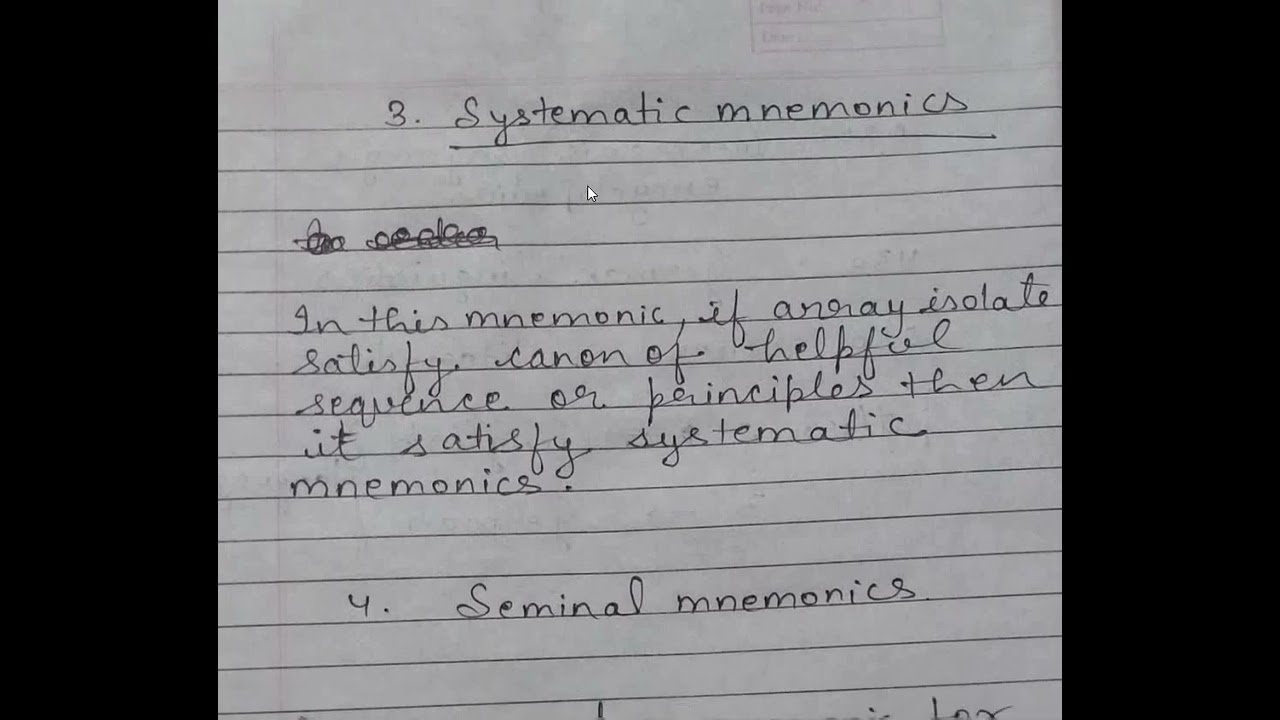 Page No.
Date
3. Systematic mnemonics
In this mnemonic, if array isolate
satisfy canon of helpful
sequence or principles then
it satisfy systematic
mnemonics.
4. Seminal mnemonics
for